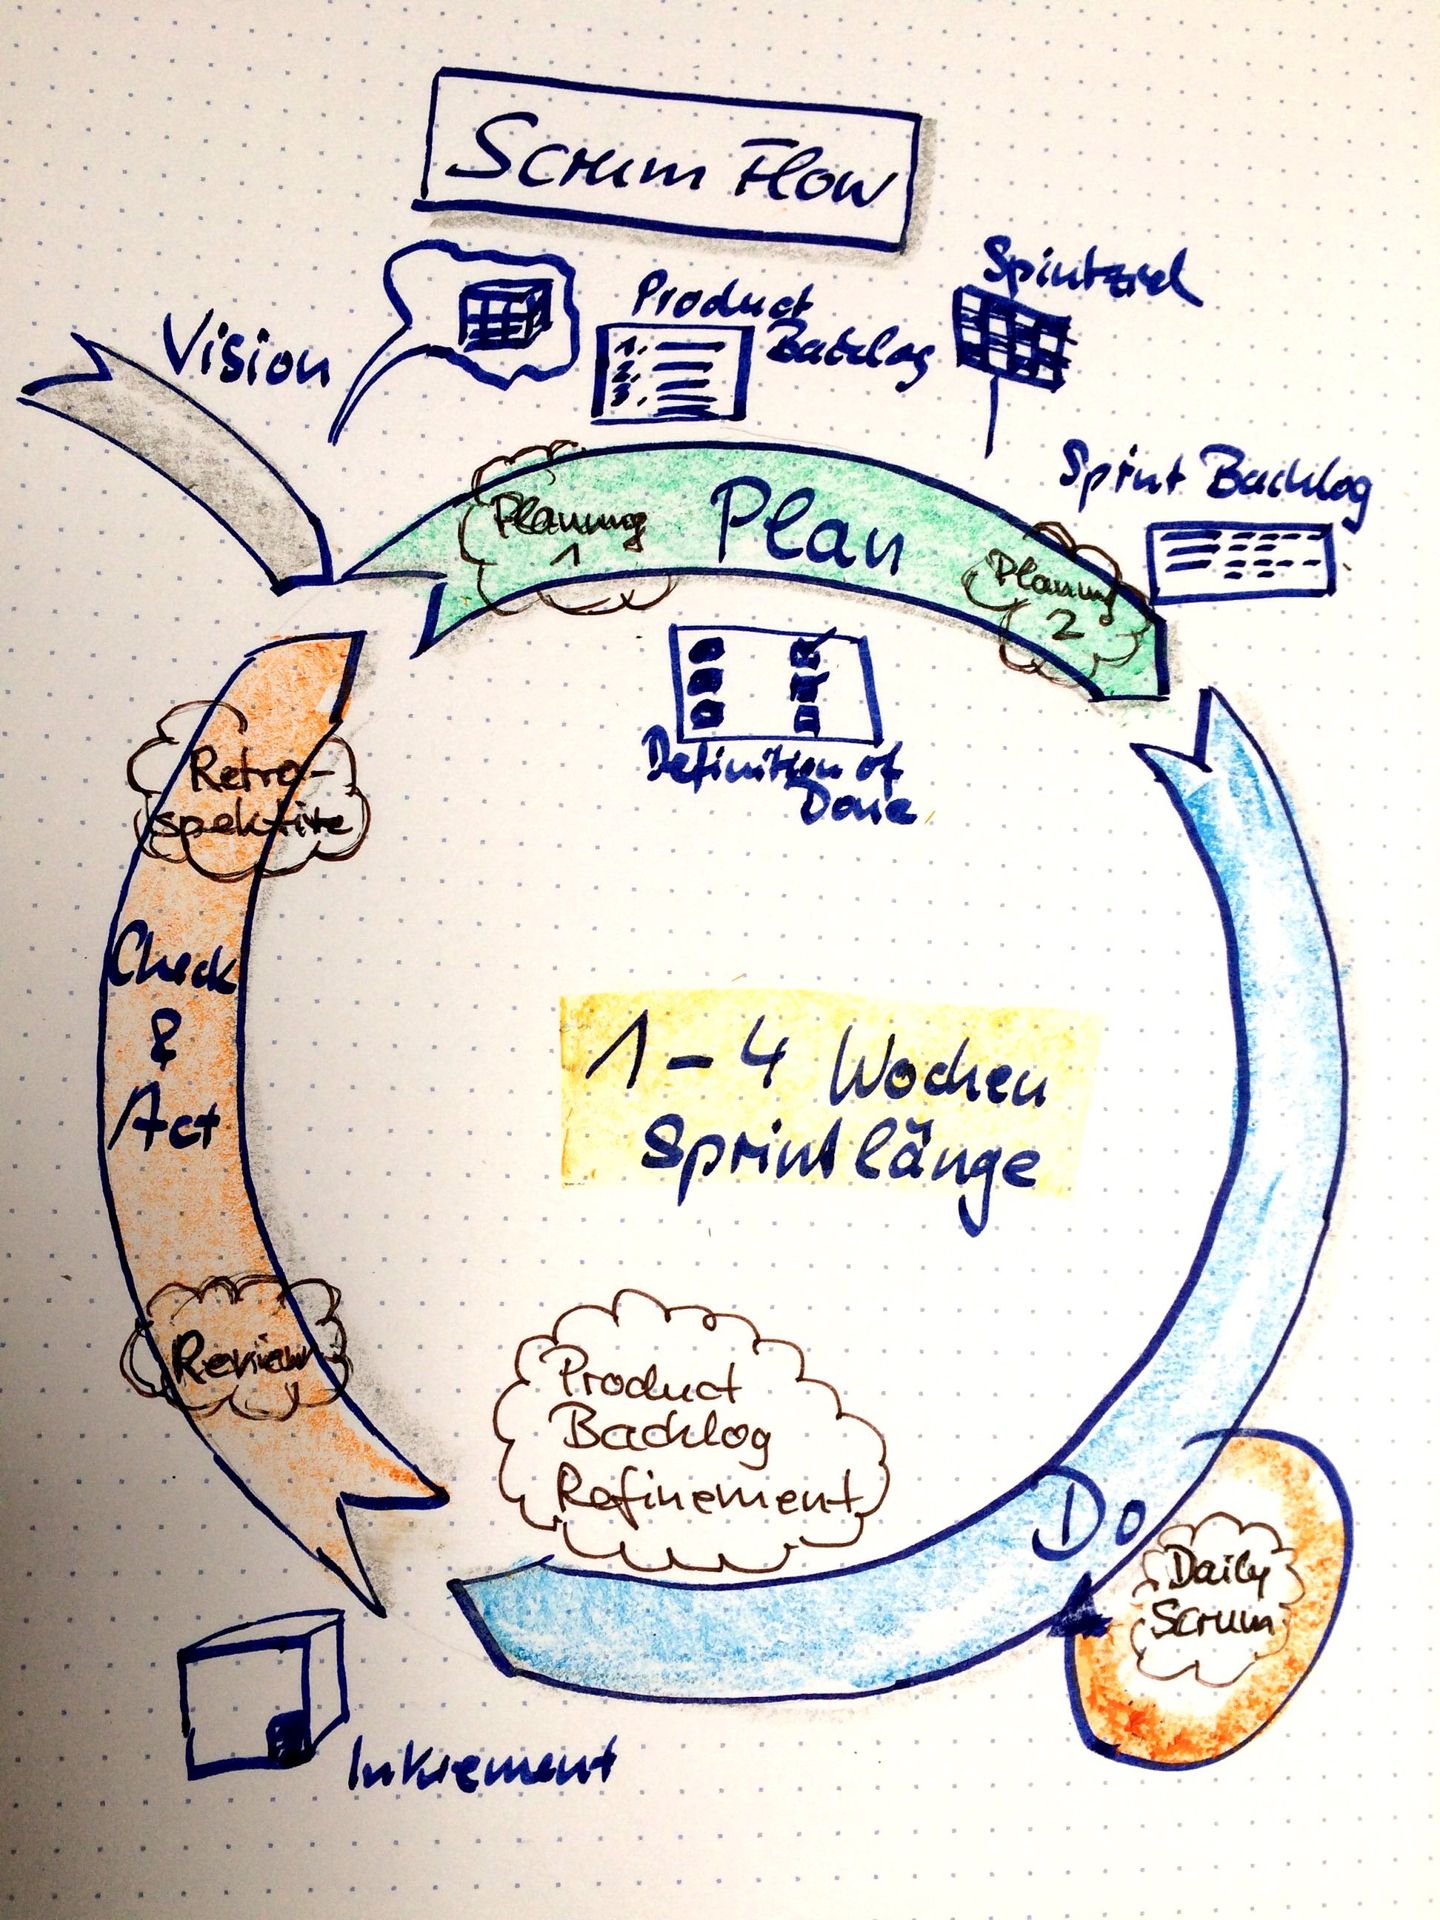 Scrum Flow
Vision
Product
Backlog
1.
2.
3.
Sprintziel
Sprint Backlog
Planning
1
Plan
Planning
2
Definition of
Done
Retro-
spektive
Check
&
Act
1-4 Wochen
Sprintlänge
Review
Product
Backlog
Refinement
Do
Daily
Scrum
Inkrement